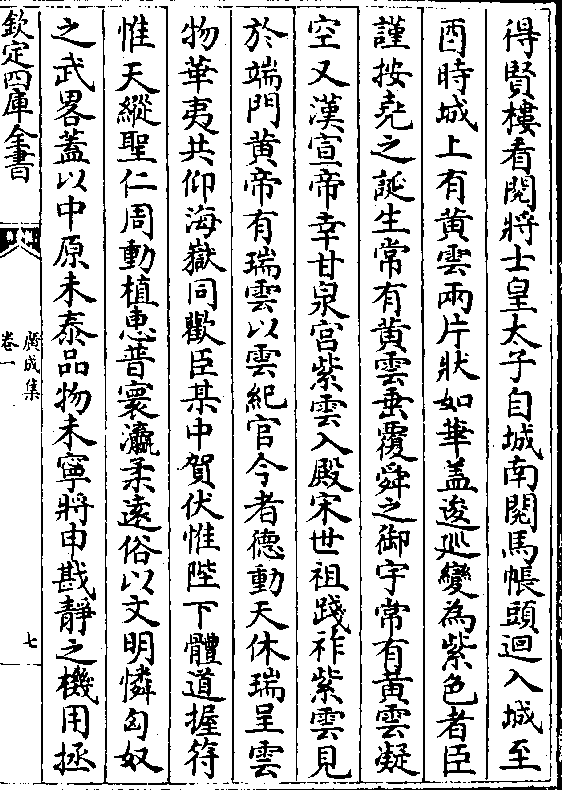 得賢樓看閱將士皇太子自城南閱馬帳頭迴入城至
酉時城上有黄雲兩片狀如華盖逡廵變為紫色者臣
謹按堯之誕生常有黄雲垂覆舜之御宇常有黄雲凝
空又漢宣帝幸甘泉宫紫雲入殿宋世祖踐祚紫雲見
於端門黄帝有瑞雲以雲紀官今者德動天休瑞呈雲
物華夷共仰海嶽同歡臣某中賀伏惟陛下體道握符
惟天縱聖仁周動植惠普寰瀛柔遠俗以文明憐匈奴
之武畧蓋以中原未泰品物未寧將申戡靜之機用拯
欽定四庫全書
廣成集
卷一
七